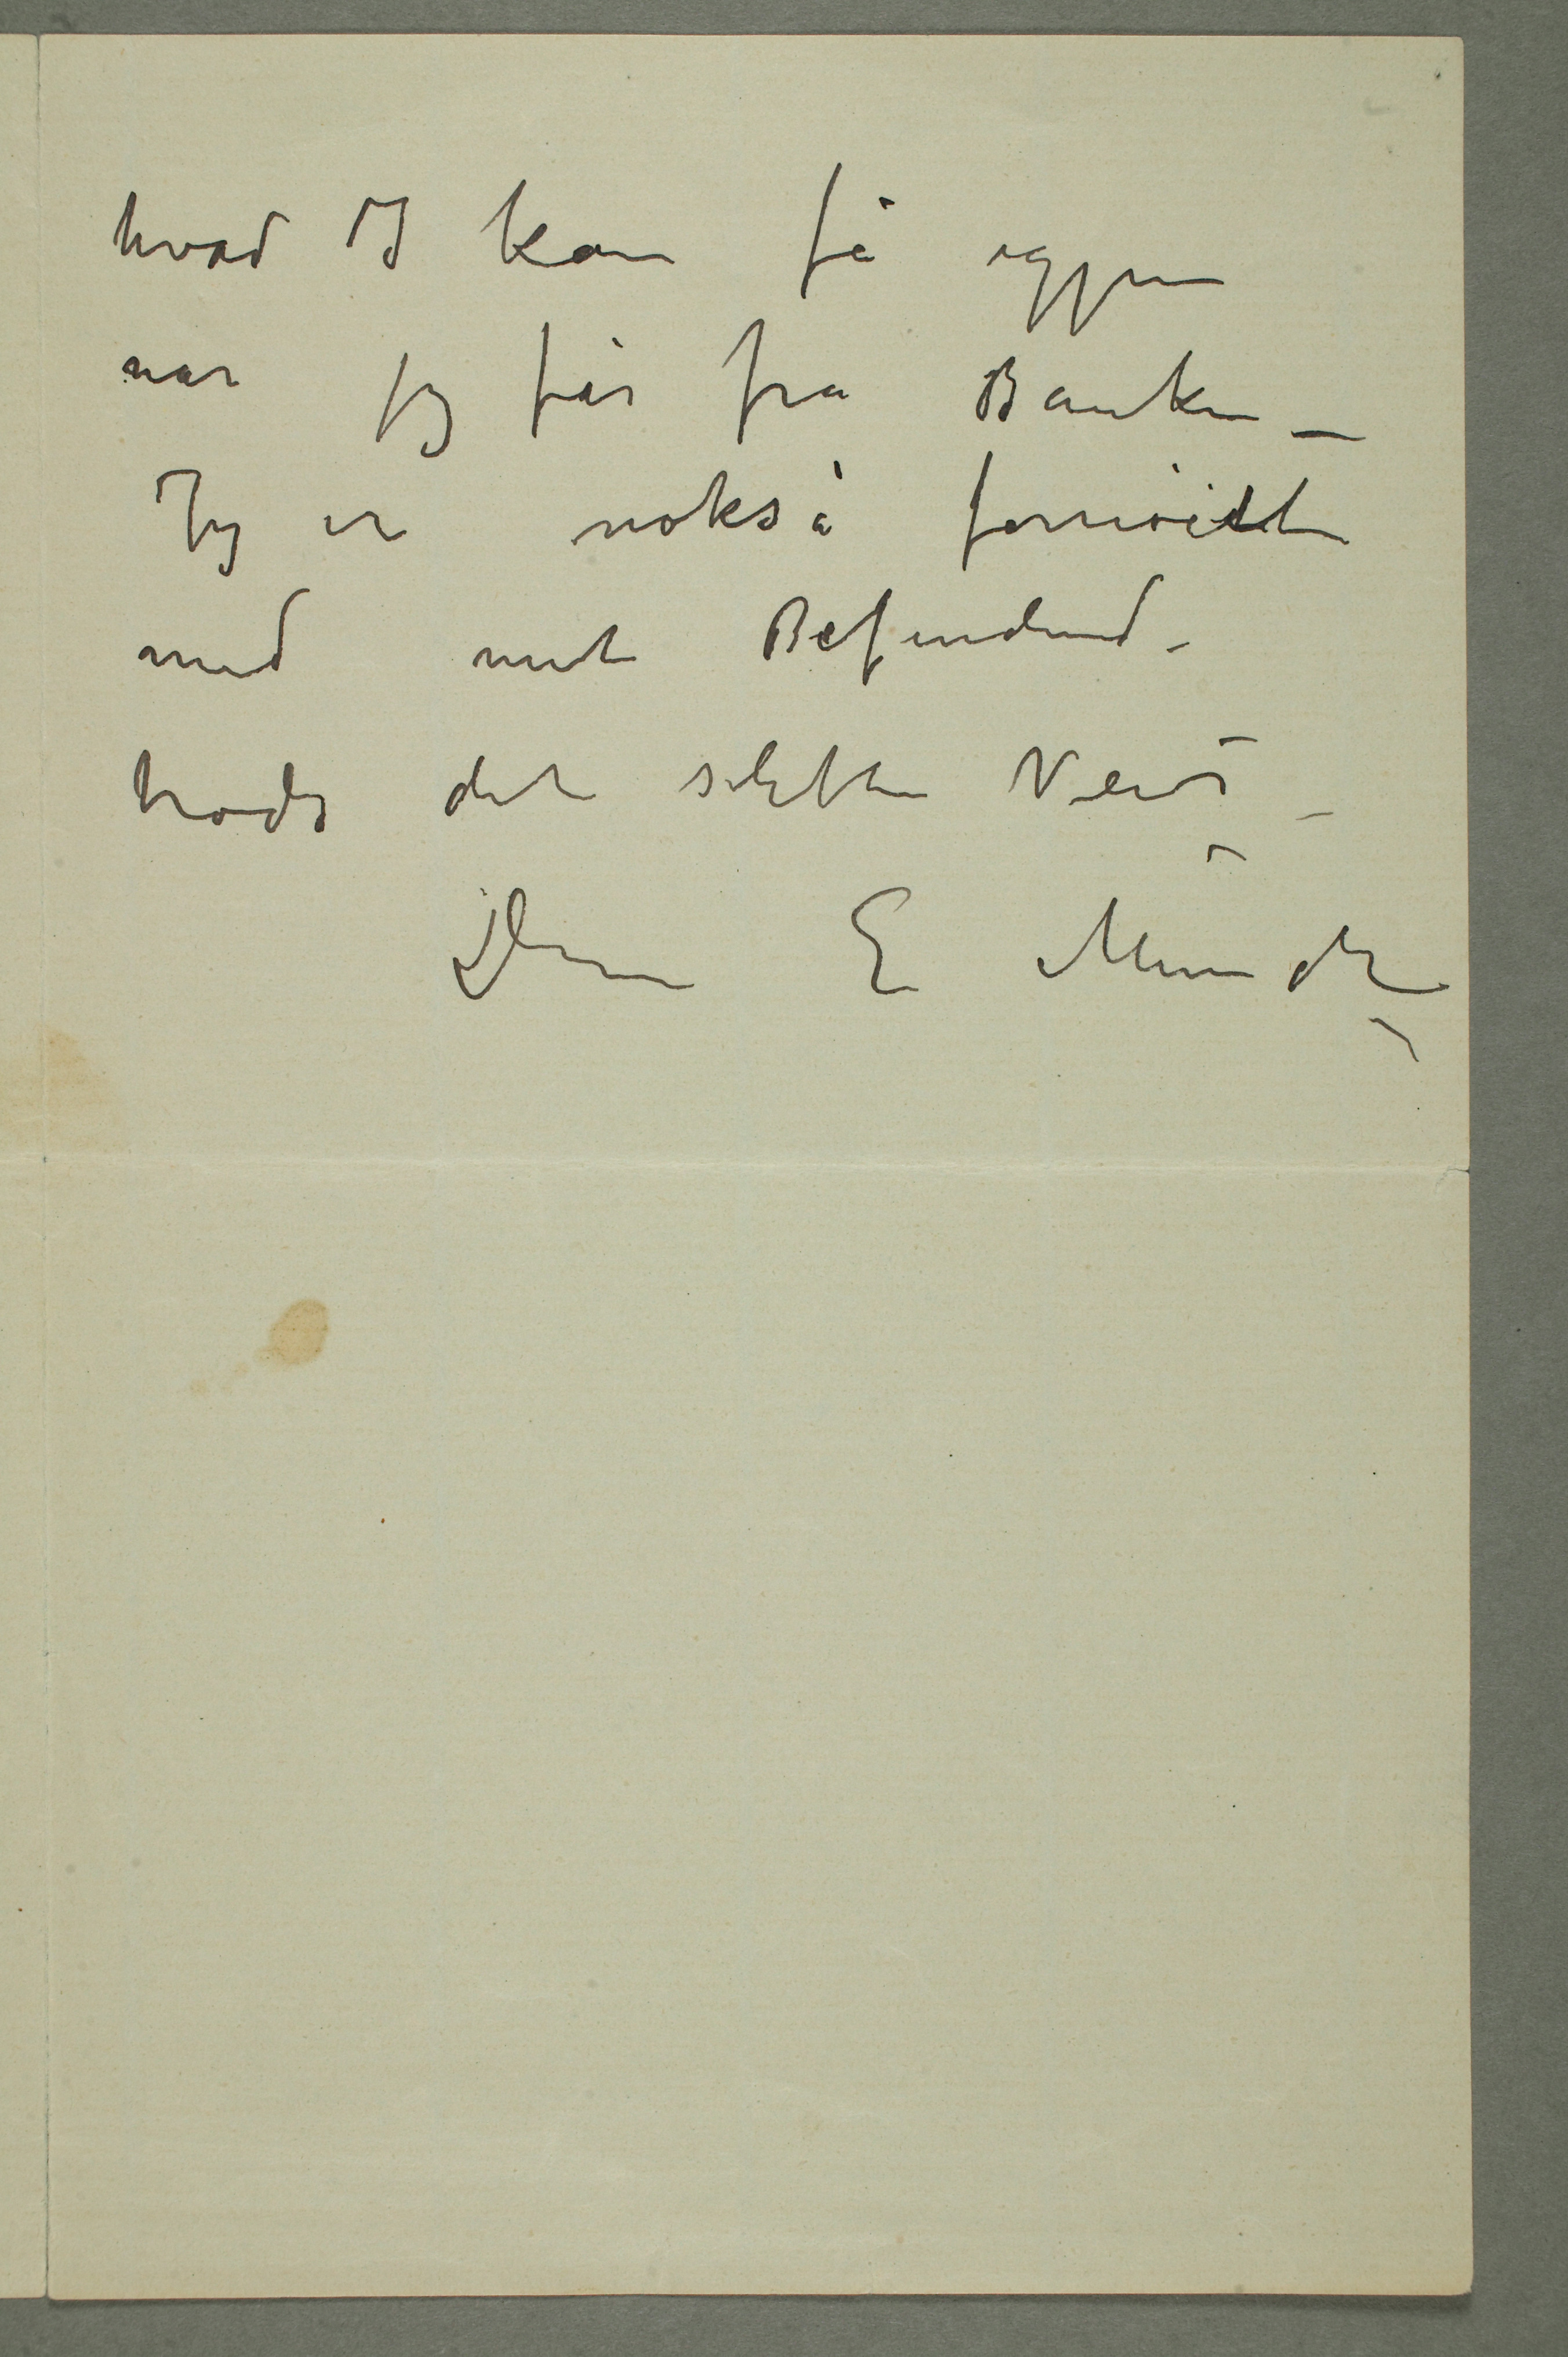 hvad I kan få iggjen
når jeg får fra Banken –
Jeg er nokså fornøiet
med mit Befindend –
trods det slette Veir –
Din E Munch